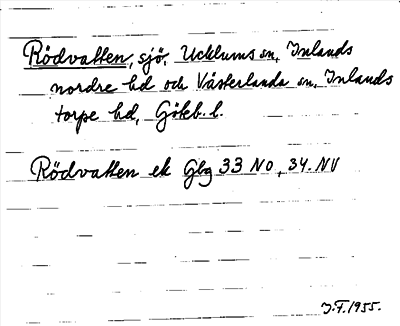 Rödvatten, sjö, Ucklums sn, Inlands
nordre hd och Västerlanda sn, Inlands
torpe hd, Göteb. l.
Rödvatten ek Gbg 33 NO, 34. NV
J.F. 1955.